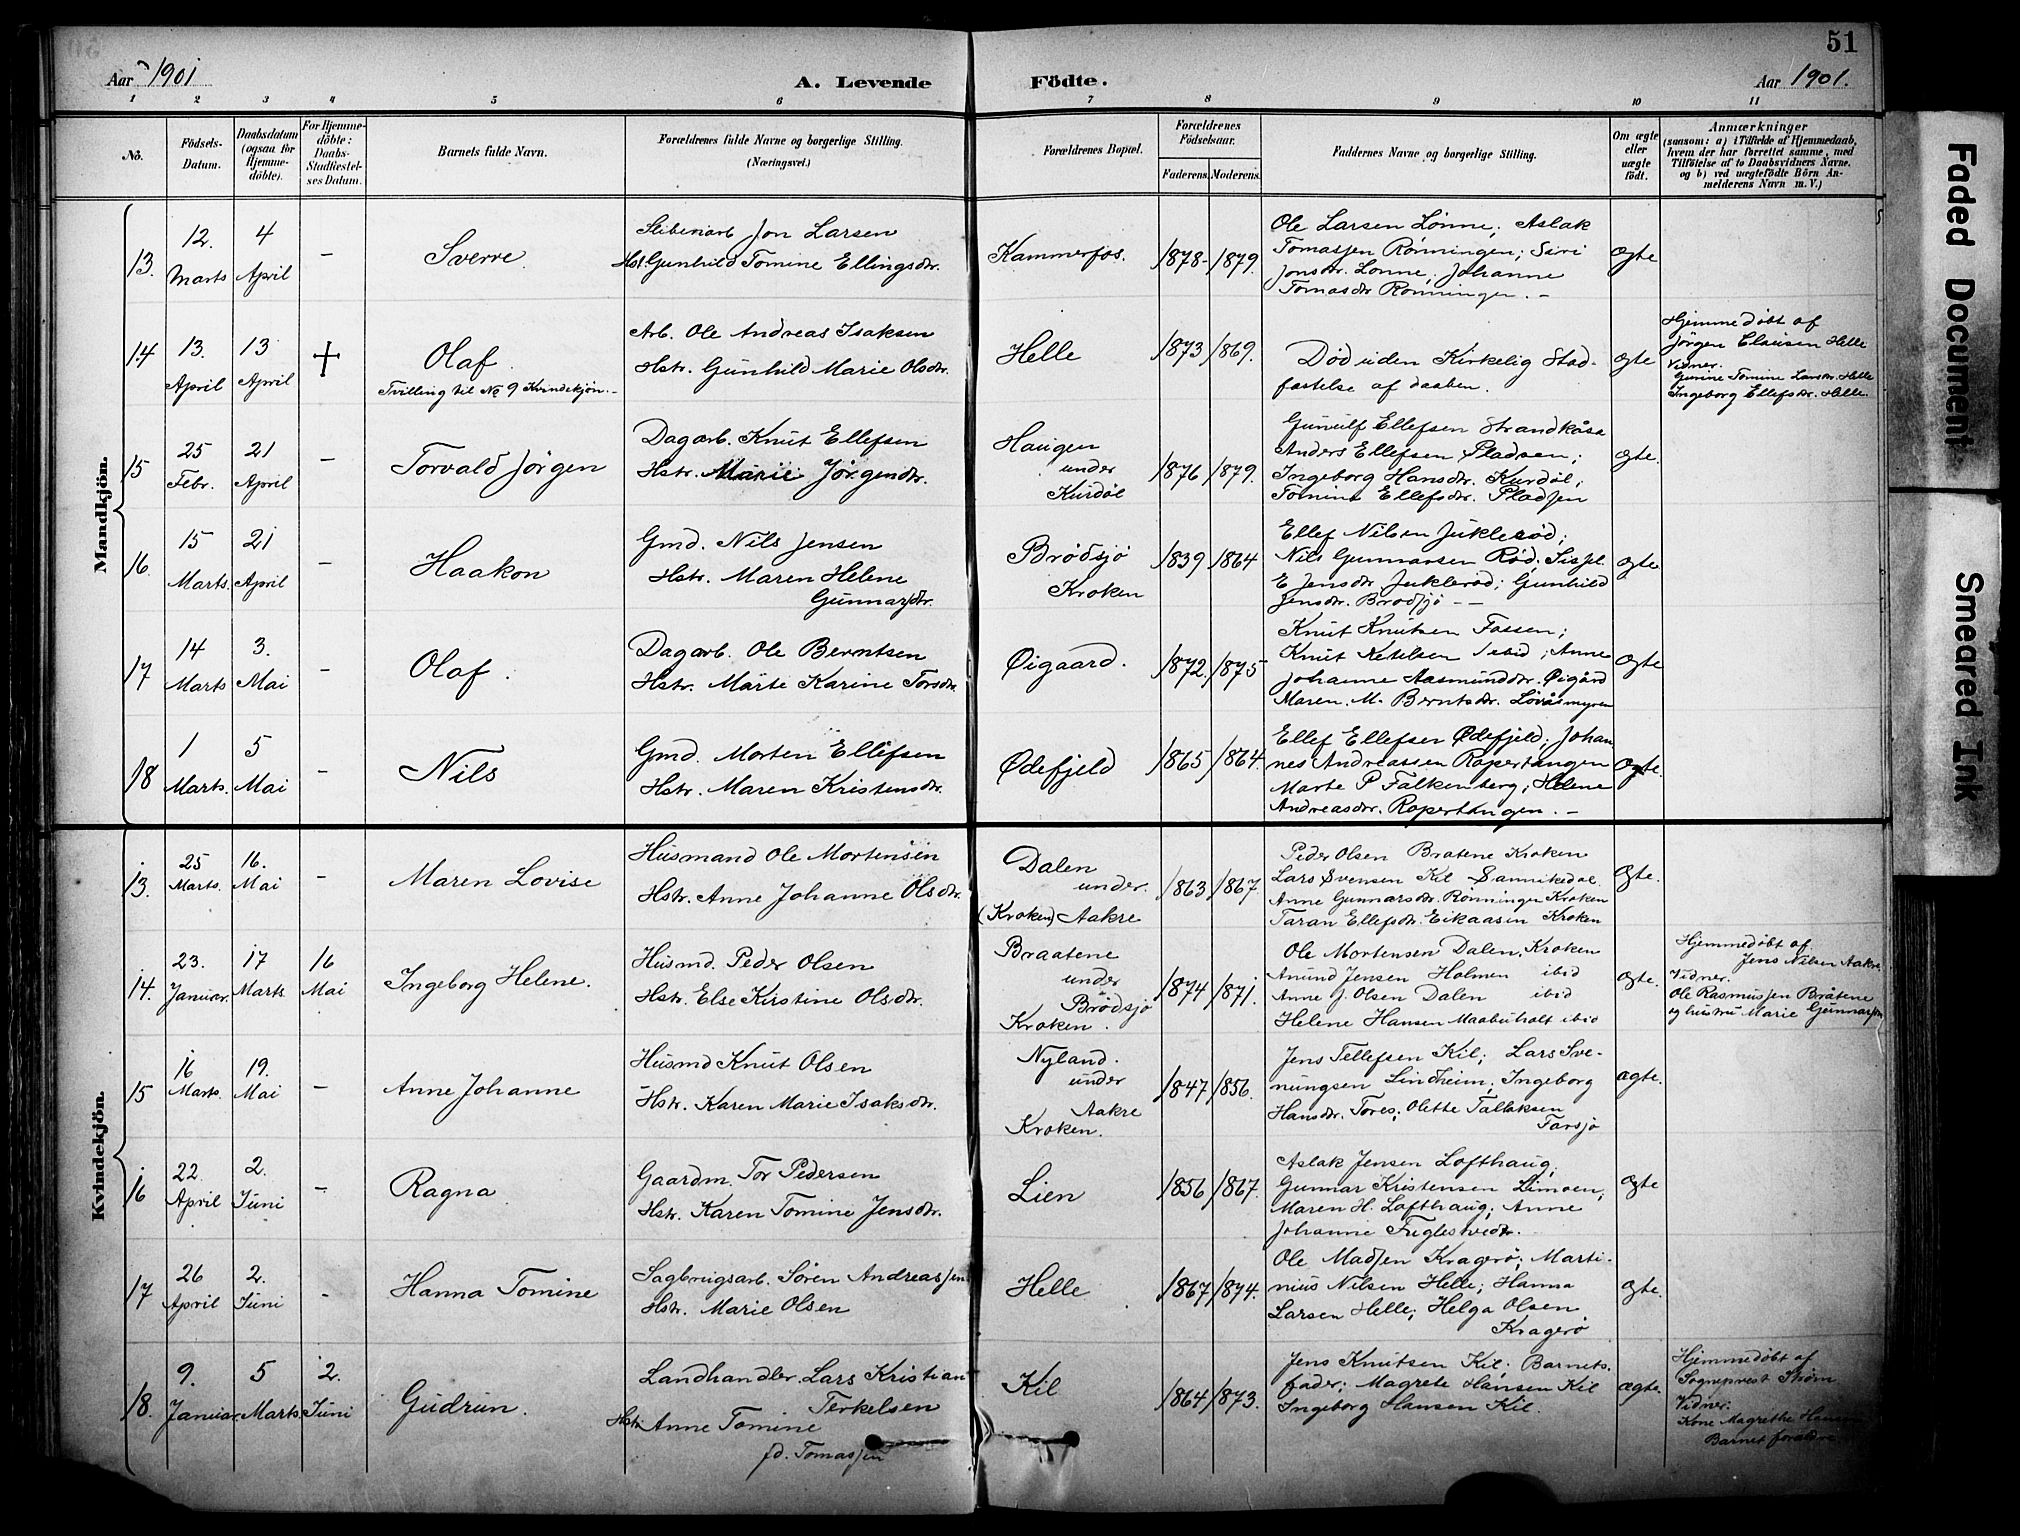 51
Aar 1901
A. Levende Födte.
Aar 1901.
1 2 3 4 5 6 7 8 9 10 11
No.
Födsels-Datum.
Daabsdatum (ogsaa for Hjemme-döbte).
For Hjemme-döbte: Daabs-Stadfæstel-ses Datum.
Barnets fulde Navn.
Forældrenes fulde Navne og borgerlige Stilling.
(Næringsvei.)
Forældrenes Bopæl.
Forældrenes Födselsaar.
Faderens. Moderens.
Faddernes Navne og borgerlige Stilling.
Om ægte eller uægte födt.
Anmærkninger
(saasom: a) i Tilfælde af Hjemmedaab,
hvem der har forrettet samme, med
Tilföielse af to Daabsvidners Navne.
og b) ved uægtefödte Börn An-
melderens Navn m. V.)
Mandkjön.
13. 12. Marts 4 April – Sverre.
Sliberiarb Jon Larsen
Hst. Gunhild Tomine Ellingsdtr.
Kammerfos. 1878- 1879.
Ole Larsen Lønne; Aslak
Tomassen Rønningen; Siri
Jonsdtr. Lonne; Johanne
Tomasdtr Rønningen. –
ægte
14 13. April 13 April † Olaf.
Tvilling til No 9 Kvindekjøn. –
Arb. Ole Andreas Isaksen
Hstr. Gunhild Marie Olsdtr.
Helle 1873 1869.
Død uden Kirkelig Stad-
fæstelse af daaben.
ægte
Hjemmedøbt af
Jørgen Clausen Helle
Vidner.
Gunine Tomine Larsdtr. Helle
Ingeborg Ellefsdtr. Helle.
15 25 Febr. 21 April – Torvald Jørgen
Dagarb. Knut Ellefsen
Hstr. Marie Jørgendtr.
Haugen
under
Kurdøl
1876 1879.
Gunulf Ellefsen Strandkåsa
Anders Ellefsen Pladsen;
Ingeborg Hansdtr. Kurdøl;
Tomine Ellefsdtr. Pladsen
ægte.
16. 15 Marts. 21 April – Haakon
Gmd. Nils Jensen
Hstr. Maren Helene
Gunnarsdtr.
Brødsjø
Kroken
1839 1864
Ellef Nilsen Juklerød;
Nils Gunnarsen Rød; Sissel
E Jensdtr Juklerød; Gunhild
Jensdtr. Brødsjø – –
ægte
17 14 Marts 3. Mai – Olaf.
Dagarb. Ole Berntsen
Hstr. Märte Karine Torsdtr.
Øigaard. 1872. 1875
Knut Knutsen Fossen;
Knut Ketelsen ibid; Anne
Johanne Aasmunddtr. Øigård
Maren. M. Berntsdtr. Løvåsmyren
ægte
18 1 Marts. 5 Mai – Nils
Gmd. Morten Ellefsen
Hstr. Maren Kristensdtr.
Ødefjeld 1865 1864.
Ellef Ellefsen Ødefjeld; Johan
nes Andreassen Rapertangen
Marte P Falkenberg; Helene
Andreasdtr. Rapertangen. –
ægte.
Kvindekjön.
13. 25 Marts. 16. Mai – Maren Lovise
Husmand Ole Mortensen
Hstr. Anne Johanne Olsdtr.
Dalen
under.
(Kroken) Aakre
1863 1867.
Peder Olsen Bratene Kroken
Lars Svensen Kil Sannikedal.
Anne Gunnarsdtr. Rønningen Kroken
Taran Ellefsdtr. Eikaasen Kroken
ægte.
14. 23. Januar. 17 Marts 16 Mai Ingeborg Helene.
Husmd. Peder Olsen
Hstr. Else Kirstine Olsdtr.
Braatene
under
Brødsjø
Kroken.
1874 1871.
Ole Mortensen Dalen, Kroken
Anund Jensen Holmen ibid
Anne J. Olsen Dalen ibid
Helene Hansen Maabuholt ibid
ægte.
Hjemmedøbt af.
Jens Nilsen Aakre.
Vidner.
Ole Rasmussen Bråtene
og hustru Marie Gunnarsen
15 16 Marts. 19. Mai – Anne Johanne
Husmd Knut Olsen
Hstr. Karen Marie Isaksdtr.
Nyland.
under
Aakre
Kroken.
1847 1856.
Jens Tellefsen Kil; Lars Sve-
nungsen Lindheim; Ingeborg
Hansdtr. Tores; Olette Tallaksen
Farsjø
ægte.
16 22. April 2. Juni – Ragna.
Gaardm. Tor Pedersen
Hstr. Karen Tomine Jensdtr.
Lien 1856 1867.
Aslak Jensen Lofthaug;
Gunnar Kristensen Limoen;
Maren H. Lofthaug; Anne
Johanne Fuglestvedt.
ægte
17 26 April 2. Juni – Hanna Tomine
Sagbrugsarb. Søren Andreassen
Hstr. Marie Olsen
Helle 1867 1874.
Ole Madsen Kragerø; Marti-
nius Nilsen Helle; Hanna
Larsen Helle; Helga Olsen
Kragerø
ægte.
18. 9. Januar 5 Marts. 2. Juni Gudrun.
Landhandler. Lars Kristian
Terkelsen
Hstr Anne Tomine
fd. Tomassen
Kil 1864 1873.
Jens Knutsen Kil. Barnets.
fader; Magrete Hansen Kil
Ingeborg Hansen Kil.
ægte.
Hjemmedøbt af
Sogneprest Strøm
Vidner:
Kone Magrethe Hansen
Barnet forældre
Faded Document
Smeared Ink